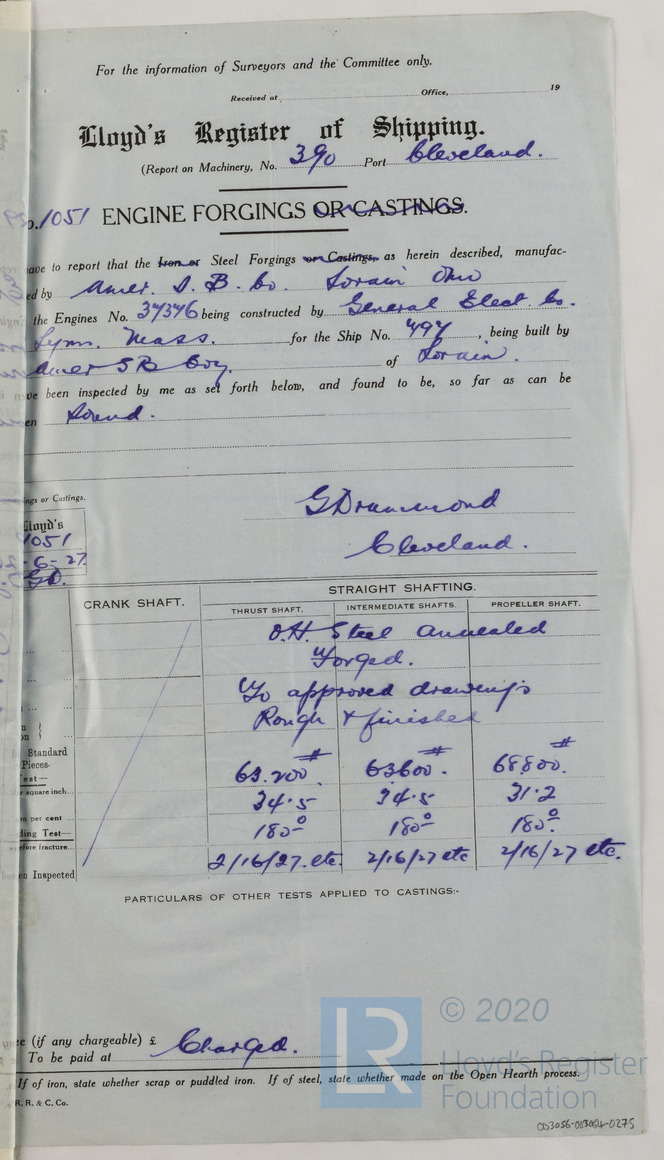 For the information of Surveyors and the Committee only.
Received at Office, 19
Lloyd's Register of Shipping.
(Report on Machinery, No. 390 Port Cleveland.
o. 1051 ENGINE FORGINGS OR CASTINGS.
ave to report that the Iron or Steel Forgings or Castings, as herein described, manufac-
ed by Amer. S. B. Co. Lorain Ohio
the Engines No. 37376 being constructed by General Elect. Co.
Lynn. Mass. for the Ship No. 797, being built by
Amer S B Coy. of Lorain.
ve been inspected by me as set forth below, and found to be, so far as can be
en Sound.
ngs or Castings.
G Drummond
Cleveland.
Lloyd's
1051
-6-27.
GD.
CRANK SHAFT. STRAIGHT SHAFTING.
THRUST SHAFT. INTERMEDIATE SHAFTS. PROPELLER SHAFT.
O.H. Steel annealed
Forged.
To approved drawings
Rough & finished
Standard
Pieces-
est—
63.200.# 63600.# 68800.#
square inch...
34.5 34.5 31.2
n per cent ...
ding Test—
180° 180° 180°
efore fracture...
n Inspected 2/16/27. etc. 2/16/27 etc 2/16/27 etc.
PARTICULARS OF OTHER TESTS APPLIED TO CASTINGS:-
e (if any chargeable) £ Charged.
To be paid at
If of iron, state whether scrap or puddled iron. If of steel, state whether made on the Open Hearth process.
R. R. & C. Co.
LR © 2020
Lloyd's Register
Foundation
003056-003064-0275